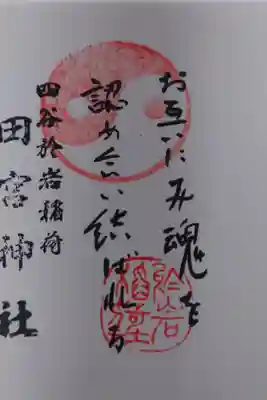 お互いにみ魂を
認め合い結ばれる
四谷於岩稲荷
田宮神社